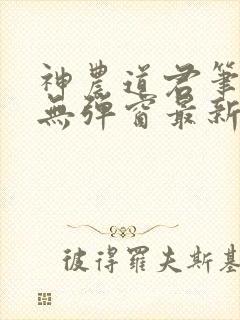 神農道君筆
無彈窗最新
彼得羅夫斯基